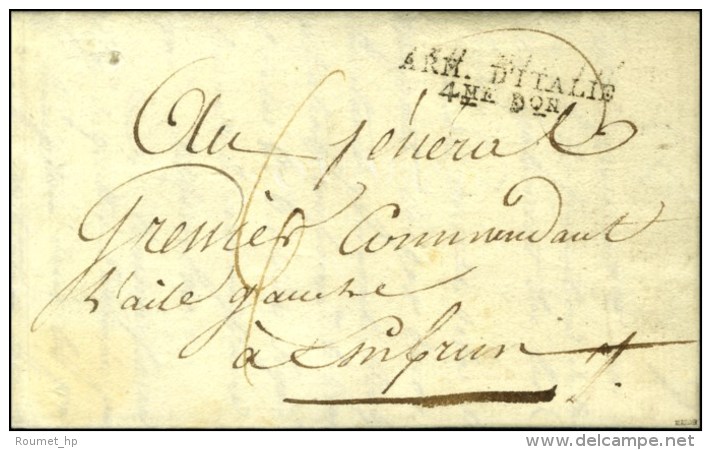 ARM. D'ITALIE
4ME DON
Au Général
Grenier Commandant
l'aile gauche
à
6
Roumet_hp
www.delcampe.net